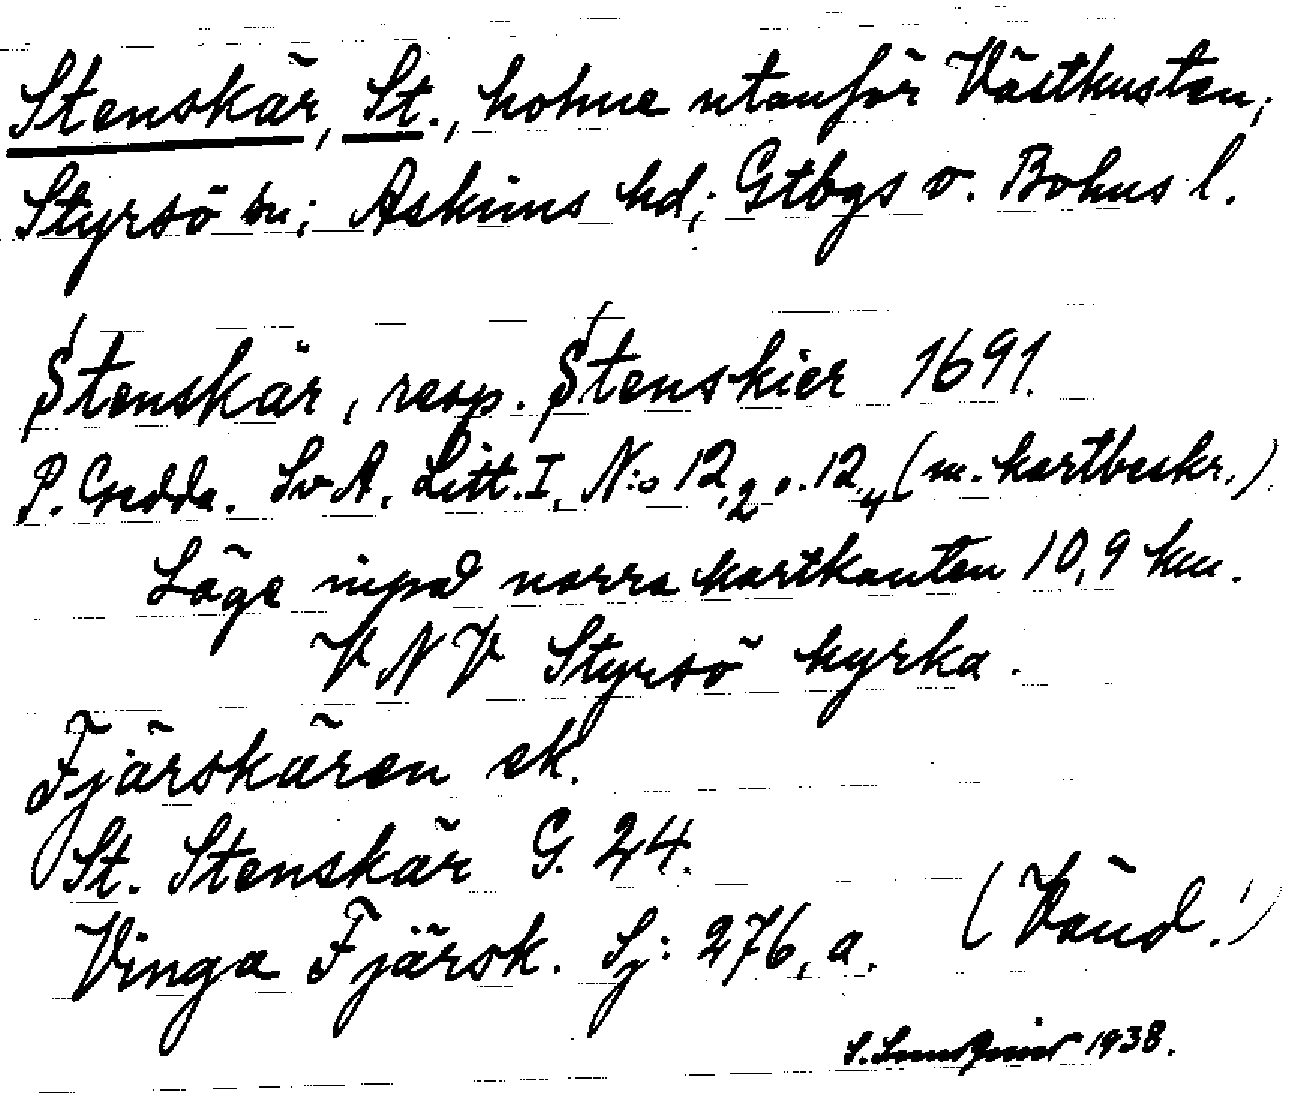 Stenskär, St., holme utanför Västkusten,
Styrsö sn; Askims hd; Gtbgs o. Bohus l.
Stenskär, resp. Stenskier 1691.
P. Gedda. SvA. Litt. I, N:o 12,2 o. 12,4 (m. kartbeskr.)
Läge inpå norra kartkanten 10,9 km.
VNV Styrsö kyrka.
Fjärskären ek.
St. Stenskär G. 24.
Vinga Fjärsk. Sj: 276, a. (Vänd!)
1938.